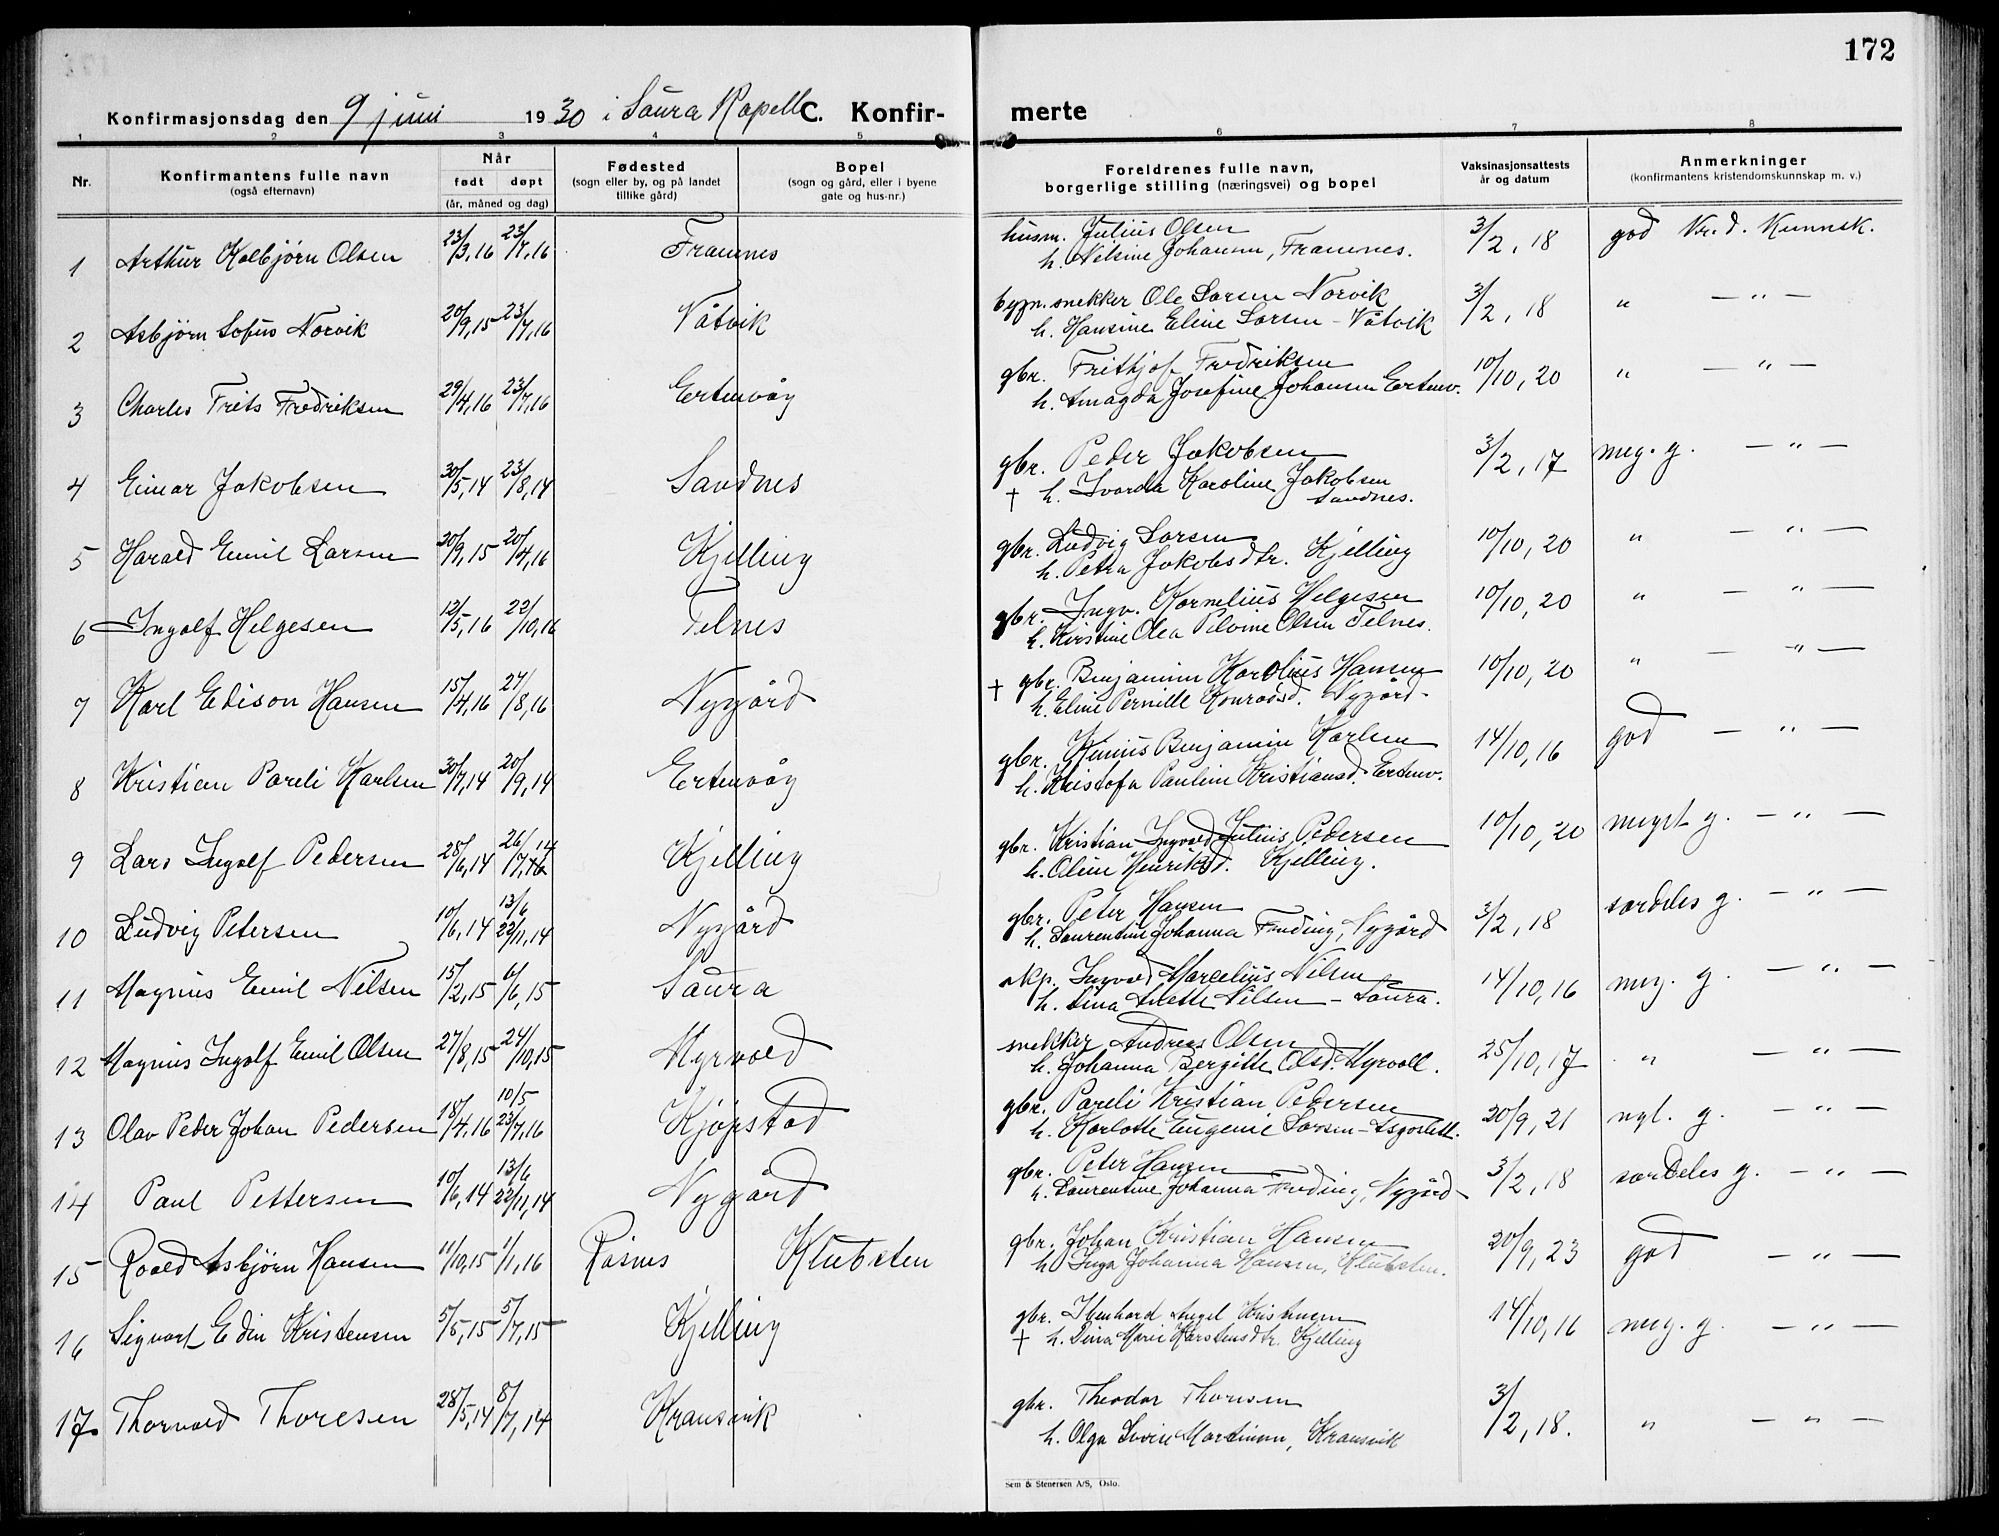 172
Konfirmasjonsdag den 9 juni 1930 i Saura Kapell C. Konfir- merte
1 2 3 4 5 6 7 8
Nr. Konfirmantens fulle navn (også efternavn) Når født døpt (år, måned og dag) Fødested (sogn eller by, og på landet tillike gård) Bopel (sogn og gård, eller i byene gate og hus-nr.) Foreldrenes fulle navn, borgerlige stilling (næringsvei) og bopel Vaksinasjonsattests år og datum Anmerkninger (konfirmantens kristendomskunnskap m. v.)
1 Arthur Kolbjørn Olsen 23/3,16 23/7,16 Framnes husm. Julius Olsen 3/2, 18 god Kr.d. Kunnsk.
h. Nilsine Johansen, Framnes.
2 Asbjørn Sofus Norvik 20/9,15 23/7,16 Våtvik bygn. snekker Ole Larsen Norvik 3/2, 18 " — " —
h. Hansine Eline Larsen - Våtvik
3 Charles Frits Fredriksen 29/4,16 23/7,16 Ertenvåg gbr. Frithjof Fredriksen 10/10, 20 " — " —
h. Amagda Josefine Johansen Ertenv.
4 Einar Jakobsen 30/5,14 23/8,14 Sandnes gbr. Peder Jakobsen 3/2, 17 meg. g. — " —
† h. Ivarda Karoline Jakobsen
Sandnes.
5 Harald Emil Larsen 20/9,15 20/4,16 Kjelling gbr. Ludvig Larsen 10/10, 20 " — " —
h. Petra Jakobsdtr. Kjelling
6 Ingolf Helgesen 12/5,16 22/10,16 Telnes gbr. Ingv. Kornelius Helgesen 10/10, 20 " — " —
h. Kirstine Olea Pilvine Olsen Telnes.
7 Karl Edison Hansen 15/4,16 27/8,16 Nygård † gbr. Benjamin Karolius Hansen 10/10, 20 " — " —
h. Eline Pernille Konradsd. Nygård
8 Kristian Pareli Karlsen 30/7,14 20/9,14 Ertenvåg gbr. Kinius Benjamin Karlsen 14/10, 16 god — " —
h. Kristofa Pauline Kristiansd. Ertenv.
9 Lars Ingolf Pedersen 28/6,14 26/7,16 14 Kjelling gbr. Kristian Ingvald Julius Pedersen 10/10, 20 meget g. — " —
h. Oline Henriksd. Kjelling.
10 Ludvig Petersen 10/6,14 13/6 22/11,14 Nygård gbr. Peter Hansen 3/2, 18 særdeles g. — " —
h. Laurentine Johanna Finding, Nygård
11 Magnus Emil Nilsen 15/2,15 6/6,15 Saura Ingvald Marcelius Nilsen 14/10, 16 meg. g. — " —
h. Lina Anette Nilsen - Saura.
12 Magnus Ingolf Emil Olsen 27/8,15 24/10,15 Myrvold snekker Andreas Olsen 25/10, 17 " — " —
h. Johanna Bergitte Olsd. Myrvoll.
13 Olav Peder Johan Pedersen 18/4,16 10/5 23/7,16 Kjøpstad gbr. Pareli Kristian Pedersen 20/9, 21 ngl. g. — " —
h. Karlotte Eugenie Larsen - Asgoslett.
14 Paul Pettersen 10/6,14 13/6 22/11,14 Nygård gbr. Peter Hansen 3/2, 18 særdeles g. — " —
h. Laurentine Johanna Finding, Nygård
15 Roald Asbjørn Hansen 11/10,15 1/1,16 Røsnes Klubsten gbr. Johan Kristian Hansen 20/9, 23 god — " —
h. Inga Johanna Hansen, Klubsten.
16 Sigvart Edin Kristensen 5/5,15 5/7,15 Kjelling gbr. Ihenhard Angel Kristensen 14/10, 16 meg. g. — " —
† h. Lina Marie Karstensdtr. Kjelling
17 Thorvald Thoresen 28/5,14 8/7,14 Kransvik gbr. Theodor Thoresen 3/2, 18. " — " —
h. Olga Lovise Martinsen, Kransvik
Sem & Stenersen A/S, Oslo.